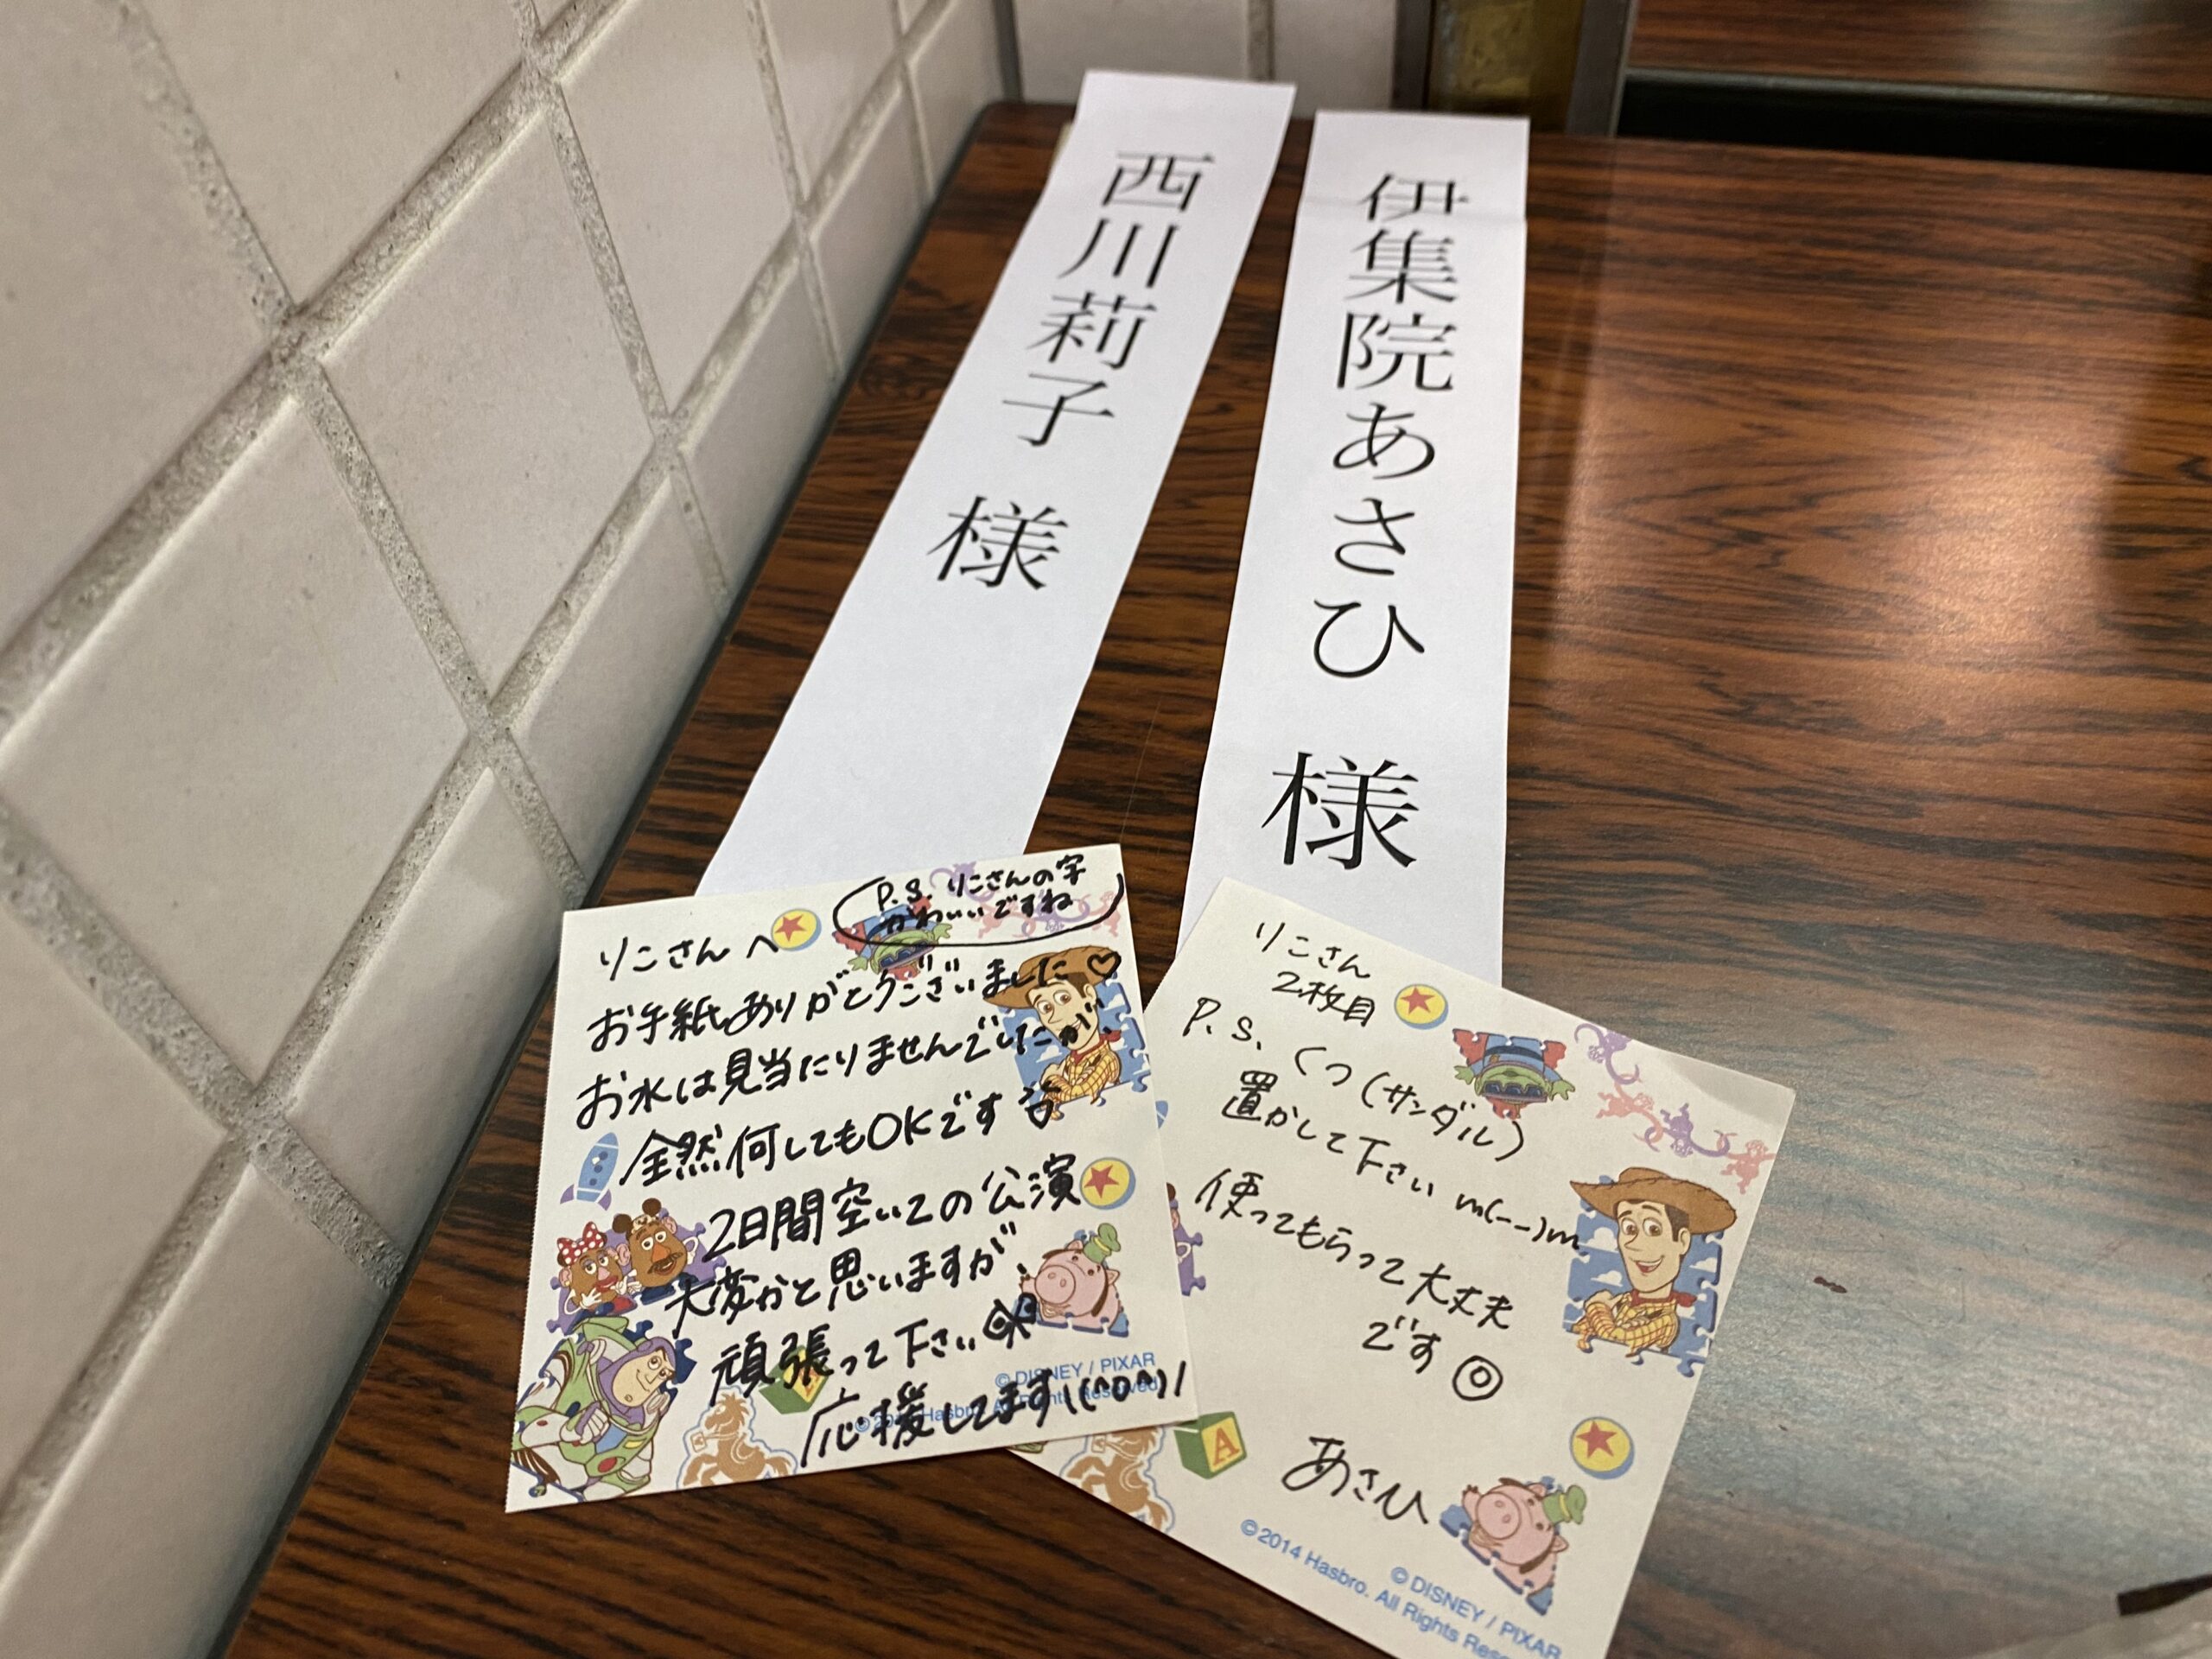 西川莉子 様
伊集院あさひ 様
P.S. りこさんの字
かわいいですね
りこさんへ
お手紙ありがとうございました♡
お水は見当たりませんでしたが、
全然何してもOKです
2日間空いての公演
大変かと思いますが、
頑張って下さい
応援してます\(^o^)/
© DISNEY / PIXAR
りこさん
2枚目
P.S. くつ(サンダル)
置かして下さいm(--)m
使ってもらって大丈夫
です◎
あさひ
A
© DISNEY / PIXAR
© 2014 Hasbro. All Rights